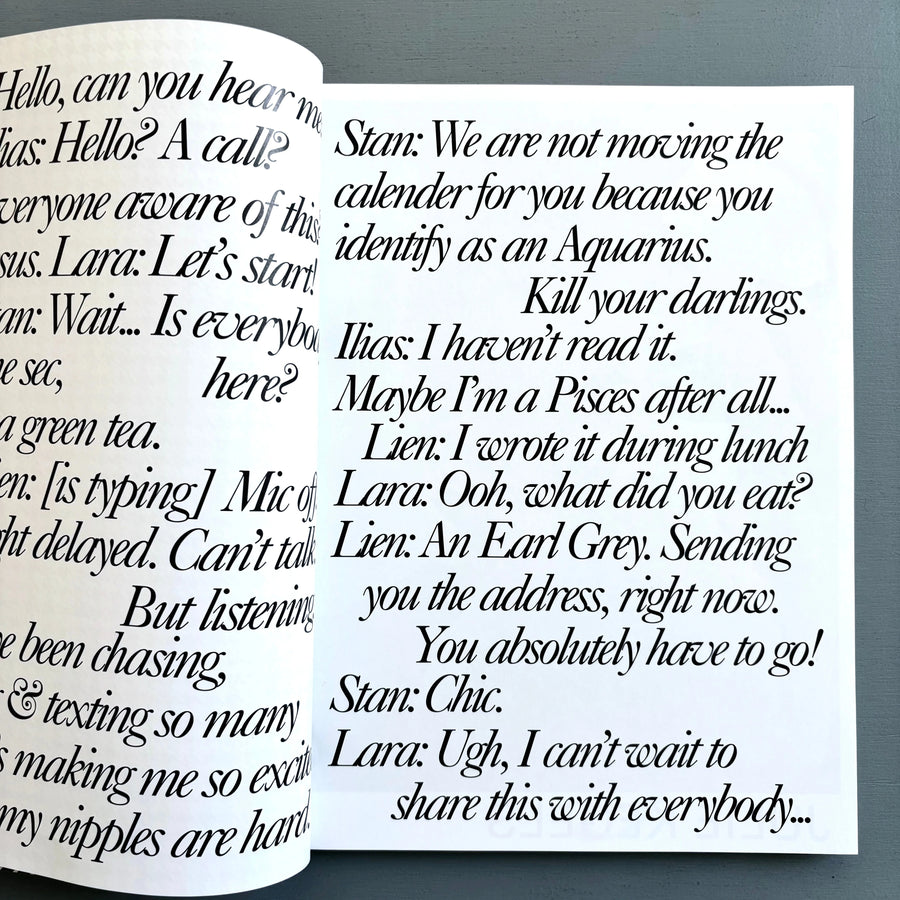 Hello, can you hear me
Ilias: Hello? A call?
everyone aware of this
sus. Lara: Let's start!
Stan: Wait... Is everybody
sec, here?
a green tea.
Lien: [is typing] Mic off
delayed. Can't talk
But listening
been chasing,
& texting so many
making me so excite
my nipples are hard.
Stan: We are not moving the
calender for you because you
identify as an Aquarius.
Kill your darlings.
Ilias: I haven't read it.
Maybe I'm a Pisces after all...
Lien: I wrote it during lunch
Lara: Ooh, what did you eat?
Lien: An Earl Grey. Sending
you the address, right now.
You absolutely have to go!
Stan: Chic.
Lara: Ugh, I can't wait to
share this with everybody...